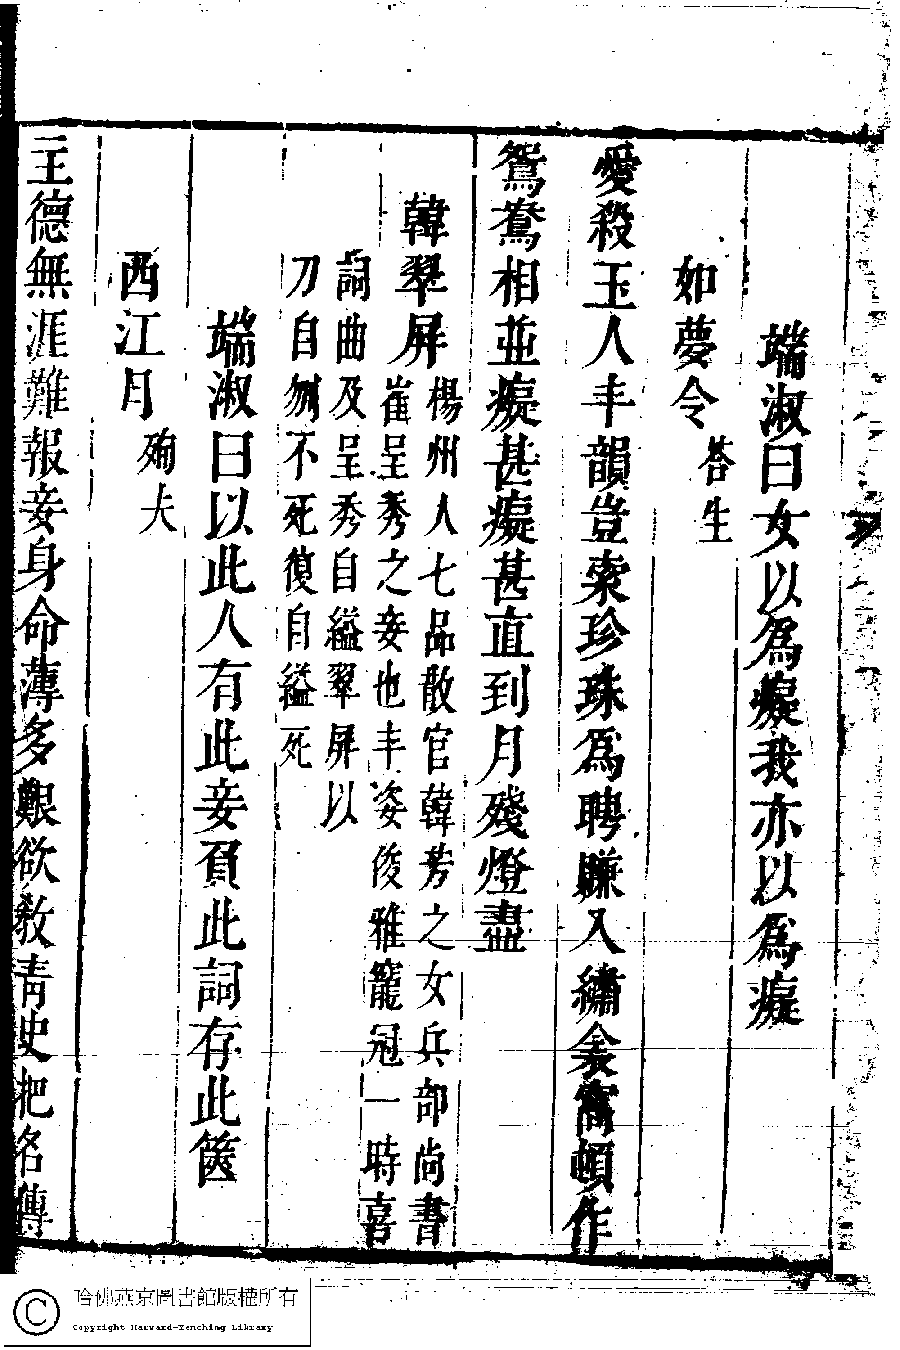 端淑曰女以爲癡我亦以爲癡
如夢令答生
愛殺玉人丰韻豈索珍珠爲聘賺入繡衾窩頓作
鴛鴦相並癡甚癡甚直到月殘燈盡
韓翠屏
楊州人七品散官韓芳之女兵部尚書
崔呈秀之妾也丰姿俊雅寵冠一時喜
詞曲及呈秀自縊翠屏以
刀自刎不死復自縊死
端淑曰以此人有此妾負此詞存此篋
西江月殉夫
主德無涯難報妾身命薄多艱欲敎靑史把名傳
哈佛燕京圖書館版權所有
Copyright Harvard-Yenching Library